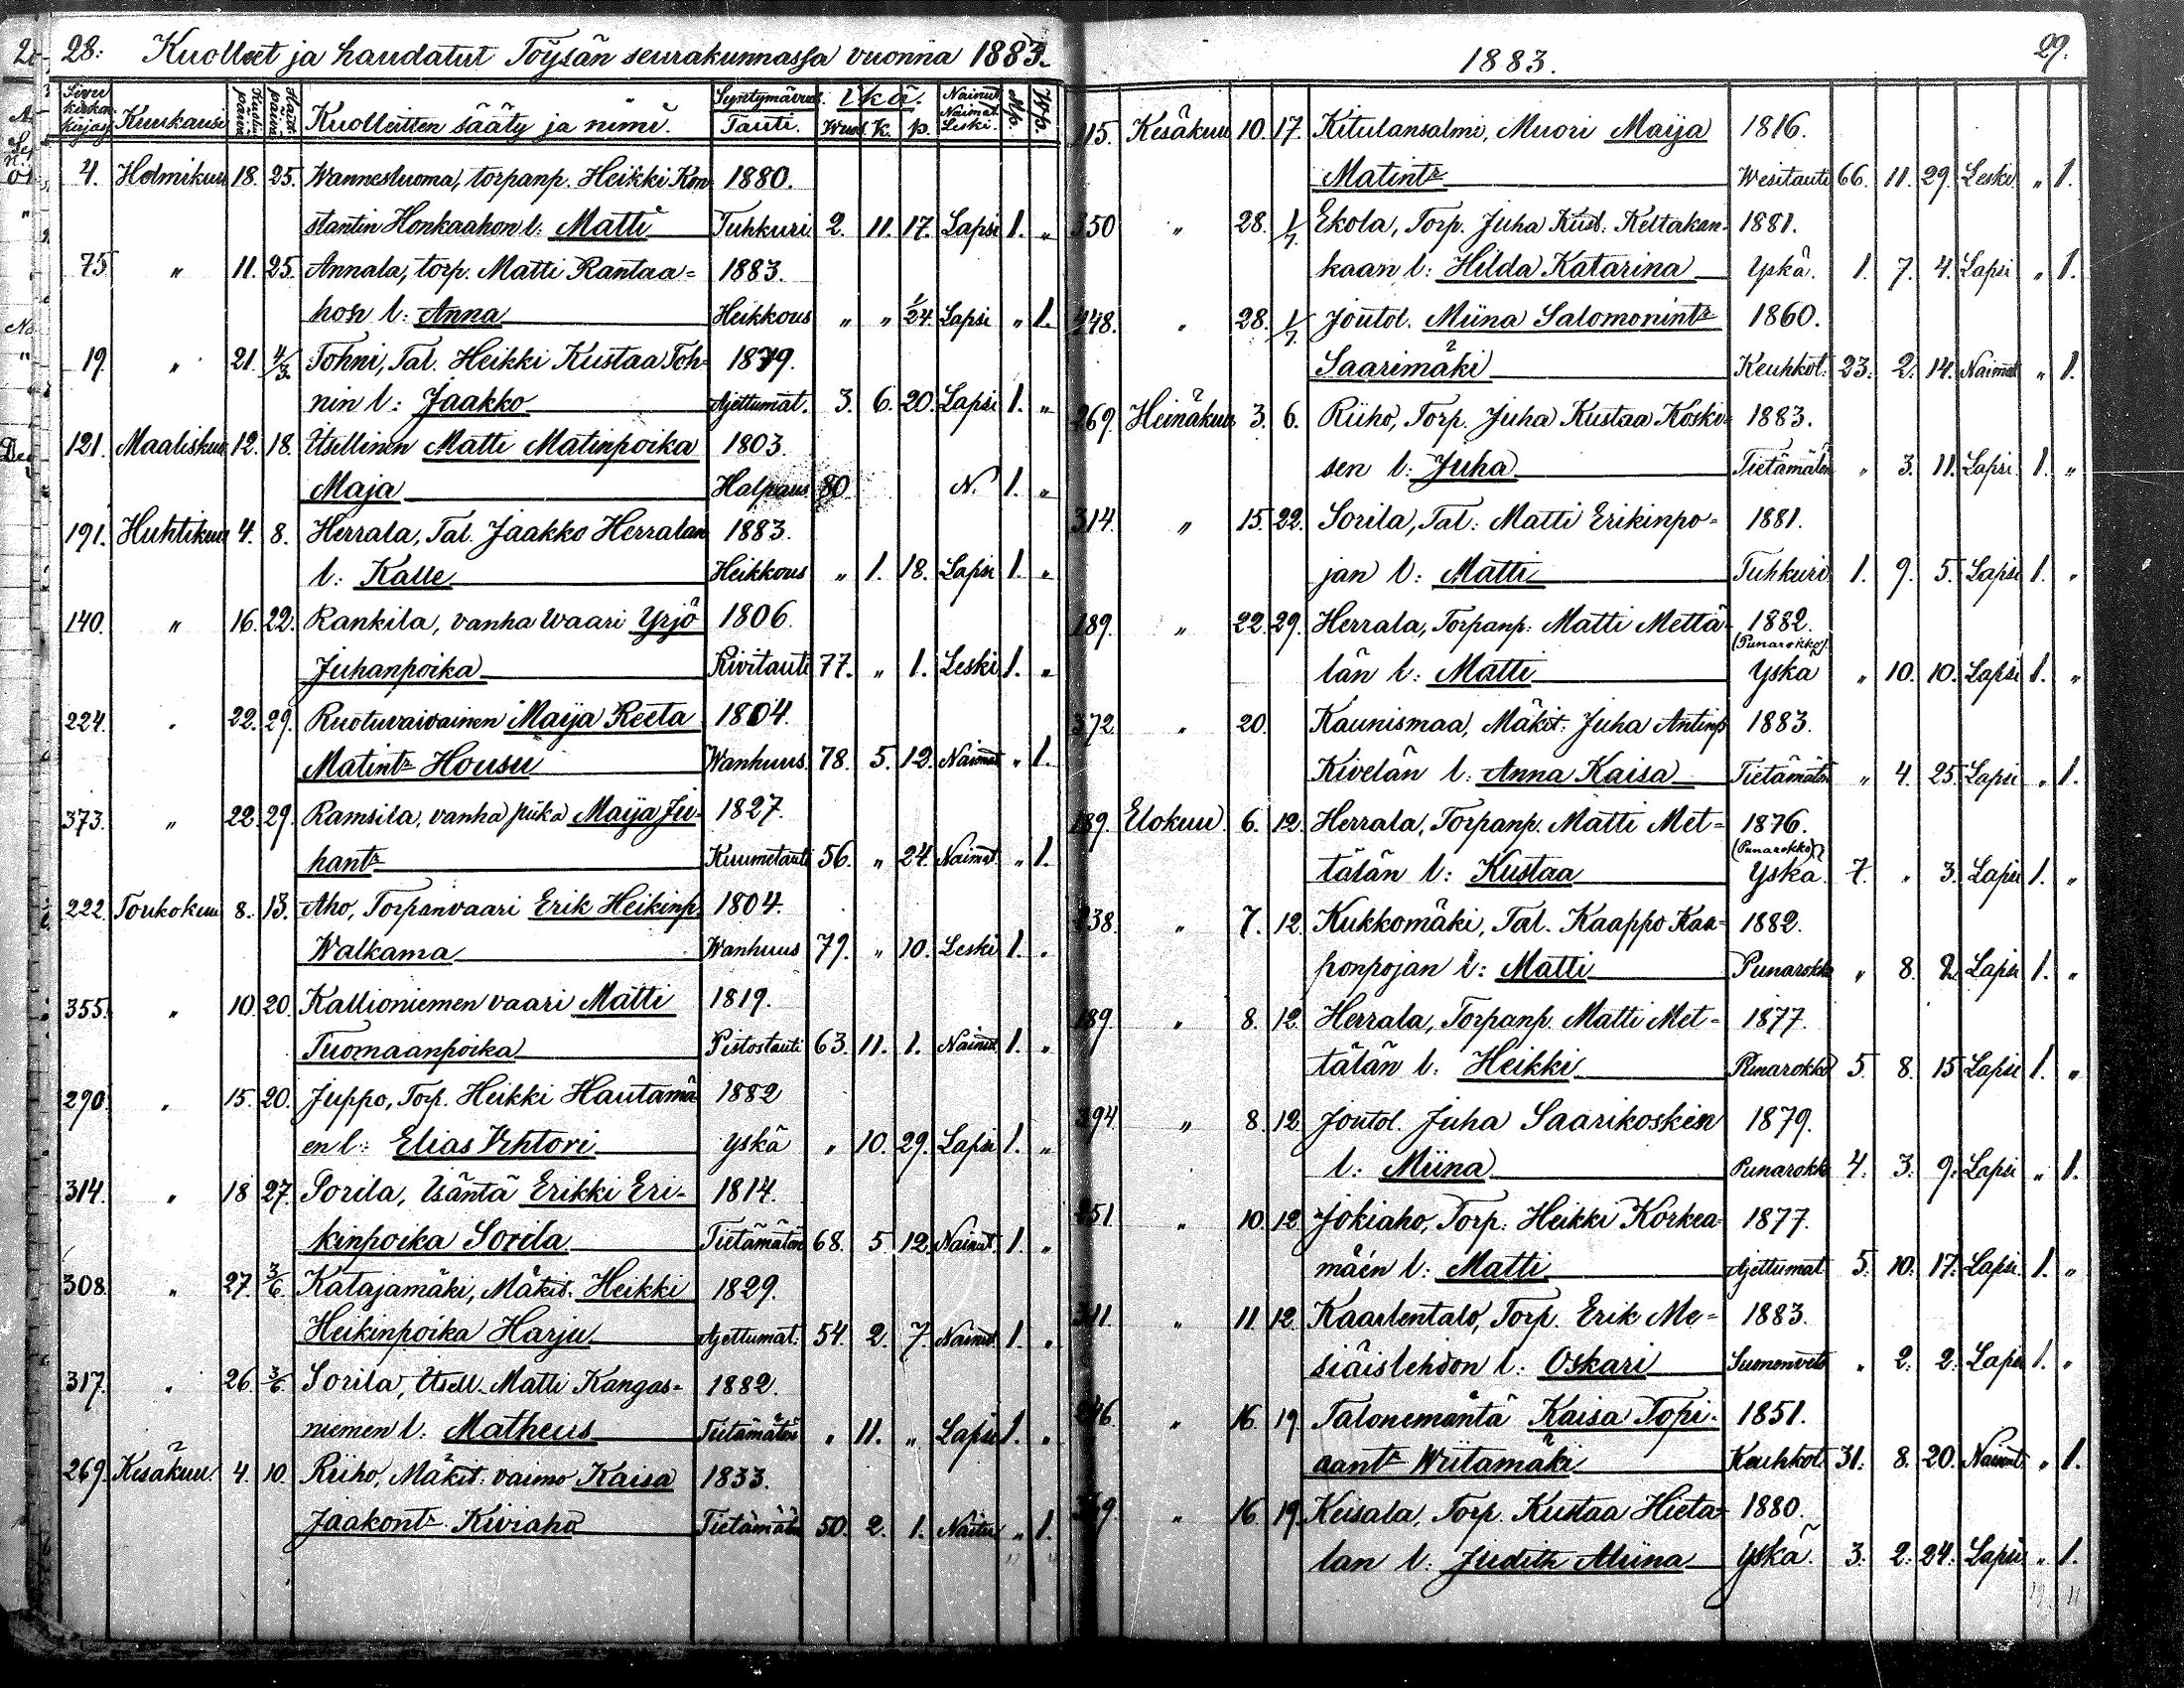 28: Kuolleet ja haudatut Töysän seurakunnassa vuonna 1883.
Sivu kirkon kirjas. Kuukausi Kuolin päivä Hauta päivä Kuolleitten sääty ja nimi. Syntymävuos. Tauti. Ikä. Wuos. K. p. Nainut. Naimat. Leski. Mp. Wp.
4. Helmikuu 18. 25. Wannesluoma, torpanp. Heikki Kon- 1880.
stantin Honkaahon l: Matti Tuhkuri 2. 11. 17. Lapsi 1. "
75 " 11. 25. Annala, torp. Matti Rantaa= 1883.
hon l: Anna Heikkous " " 1/24. Lapsi " 1.
19. " 21. 4/3. Tohni, Tal. Heikki Kustaa Toh= 1879.
nin l: Jaakko Ajettumat. 3. 6. 20. Lapsi 1. "
121. Maaliskuu 12. 18. Itsellinen Matti Matinpoika 1803.
Maja Halpaus 80 N. 1. "
191. Huhtikuu 4. 8. Herrala, Tal. Jaakko Herralan 1883.
l: Kalle Heikkous " 1. 18. Lapsi 1. "
140. " 16. 22. Rankila, vanha Waari Yrjö 1806.
Juhanpoika Kivitauti 77. " 1. Leski 1. "
224. " 22. 29. Ruotuvaivainen Maija Reeta 1804.
Matintr Housu Wanhuus. 78. 5. 12. Naimat " 1.
373. " 22. 29. Ramsila, vanha piika Maija Ju- 1827.
hantr Kuumetauti 56. " 24. Naimat. " 1.
222. Toukokuu 8. 13. Aho, Torpanvaari Erik Heikinp. 1804.
Walkama Wanhuus 79. " 10. Leski 1. "
355. " 10. 20. Kallioniemen vaari Matti 1819.
Tuomaanpoika Pistostauti 63. 11. 1. Nainut 1. "
290. " 15. 20. Juppo, Torp. Heikki Hautamä- 1882
en l: Elias Vihtori Yskä " 10. 29. Lapsi 1. "
314. " 18 27. Sorila, Isäntä Erikki Eri- 1814.
kinpoika Sorila Tietämätön 68. 5. 12. Nainut. 1. "
308. " 27. 3/6. Katajamäki, Mäkit. Heikki 1829.
Heikinpoika Harju Ajettumat. 54. 2. 7. Nainut. 1. "
317. " 26. 3/6. Sorila, Itsell. Matti Kangas= 1882.
niemen l. Matheus Tietämätön " 11. " Lapsi 1. "
269. Kesäkuu. 4. 10. Riiho, Mäkit. vaimo Kaisa 1833.
Jaakontr Kiviaho Tietämätön 50. 2. 1. Naitu " 1.
1883. 29.
115. Kesäkuu 10. 17. Kitulansalmi, Muori Maija 1816.
Matintr Wesitauti 66. 11. 29. Leski " 1.
350 " 28. 1/7. Ekola, Torp. Juha Kust. Keltakan- 1881.
kaan l: Hilda Katarina Yskä. 1. 7. 4. Lapsi " 1.
248. " 28. 1/7. Joutol. Miina Salomonintr 1860.
Saarimäki Keuhkot. 23. 2. 14. Naimat " 1.
269. Heinäkuu 3. 6. Riiho, Torp. Juha Kustaa Koski= 1883.
sen l: Juha Tietämätön " 3. 11. Lapsi. 1. "
314. " 15. 22. Sorila, Tal: Matti Erikinpo= 1881.
jan l: Matti Tuhkuri 1. 9. 5. Lapsi 1. "
189. " 22. 29. Herrala, Torpanp: Matti Mettä- 1882.
(Punarokko).
län l: Matti Yskä " 10. 10. Lapsi 1. "
372. " 20. Kaunismaa, Mäkit: Juha Antinp 1883.
Kivelän l: Anna Kaisa Tietämätön " 4. 25. Lapsi " 1.
189. Elokuu. 6. 12. Herrala, Torpanp. Matti Met= 1876.
(Punarokko)
tälän l: Kustaa Yskä. 7. " 3. Lapsi 1. "
238. " 7. 12. Kukkomäki, Tal. Kaappo Kaa= 1882.
ponpojan l: Matti Punarokko " 8. 2. Lapsi 1. "
189. " 8. 12. Herrala, Torpanp. Matti Met= 1877.
tälän l: Heikki Punarokko 5. 8. 15 Lapsi 1. "
394. " 8. 12 Joutol. Juha Saarikosken 1879.
l: Miina Punarokko 4. 3. 9. Lapsi " 1.
251. " 10. 12 Jokiaho, Torp: Heikki Korkea= 1877.
mäen l: Matti Ajettumat 5. 10. 17. Lapsi. 1. "
311. " 11. 12. Kaarlentalo, Torp. Erik Me= 1883.
siäislehdon l: Oskari Suonenveto " 2. 2. Lapsi 1. "
246. " 16. 19. Talonemäntä Kaisa Topi- 1851.
aantr Wiitamäki Keuhkot. 31. 8. 20. Nainut " 1.
369. " 16. 19. Keisala, Torp. Kustaa Hieta= 1880.
lan l: Judith Miina Yskä. 3. 2. 24. Lapsi " 1.